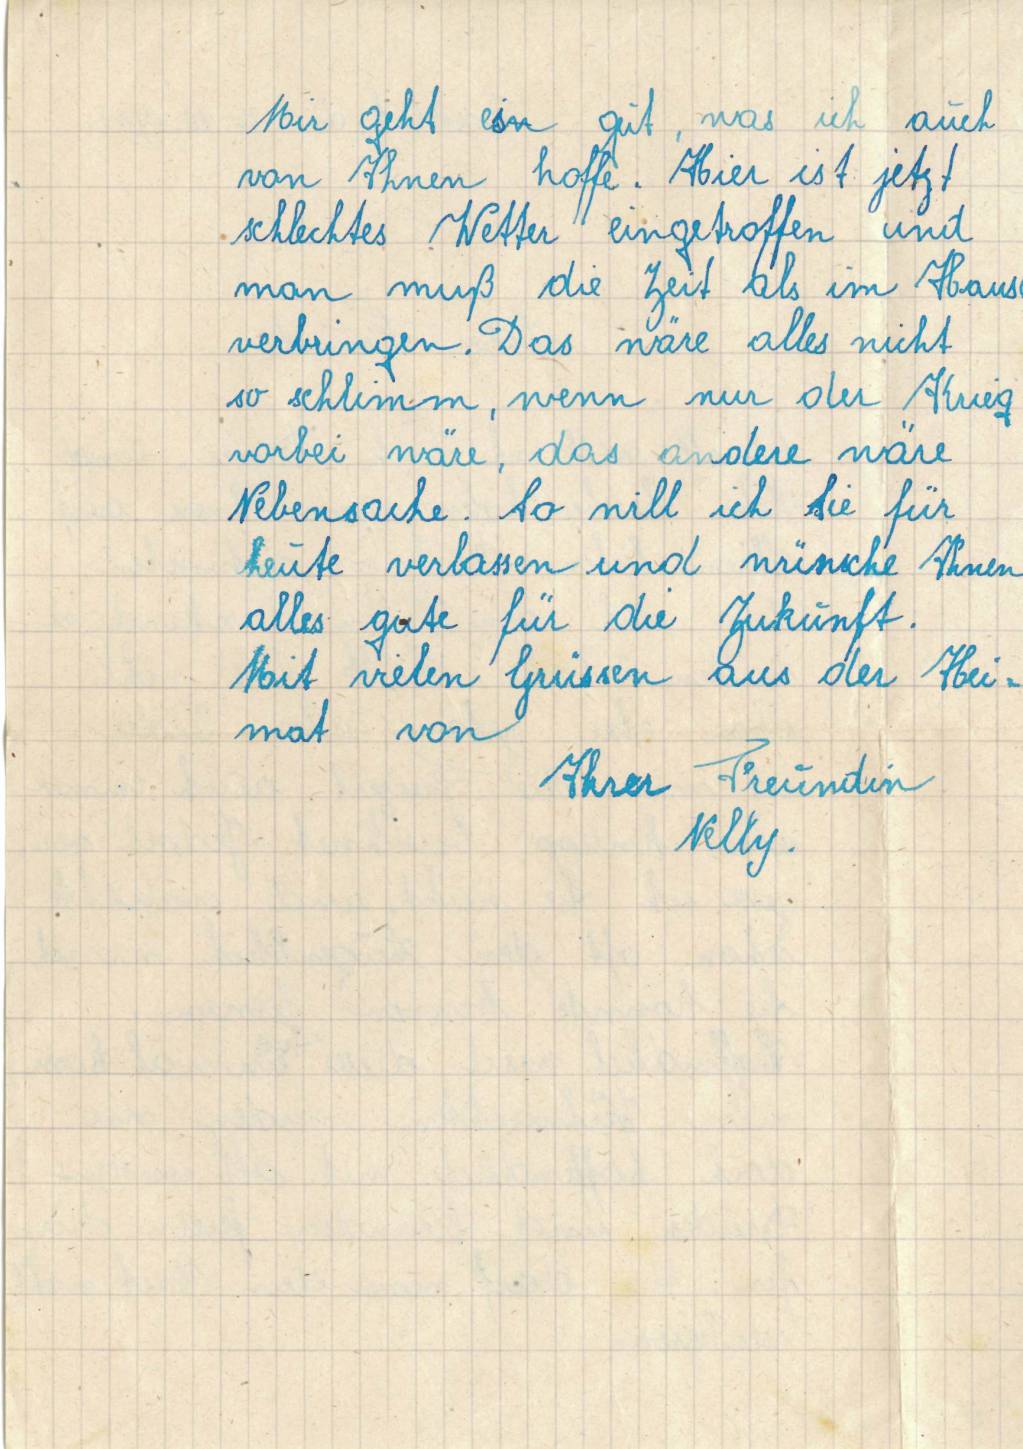 Mir geht es gut, was ich auch
von Ihnen hoffe. Hier ist jetzt
schlechtes Wetter eingetroffen und
man muß die Zeit als im Hause
verbringen. Das wäre alles nicht
so schlimm, wenn nur der Krieg
vorbei wäre, das andere wäre
Nebensache. So will ich Sie für
heute verlassen und wünsche Ihnen
alles gute für die Zukunft.
Mit vielen Grüssen aus der Hei-
mat von
Ihrer Freundin
Nelly.